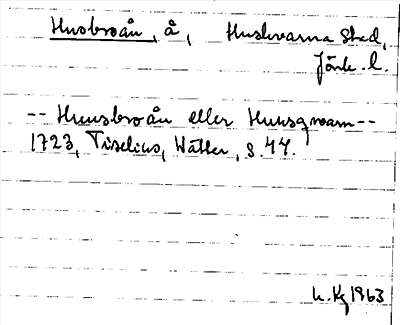 Husbroån, å, Huskvarna stad,
Jönk. l.
-- Huusbroån eller Huusqvarn --
1723, Tiselius, Wätter, s. 44.
1963